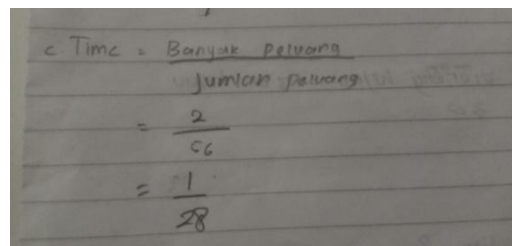 c. Time = Banyak Peluang
Jumlah Peluang
= 2
56
= 1
28